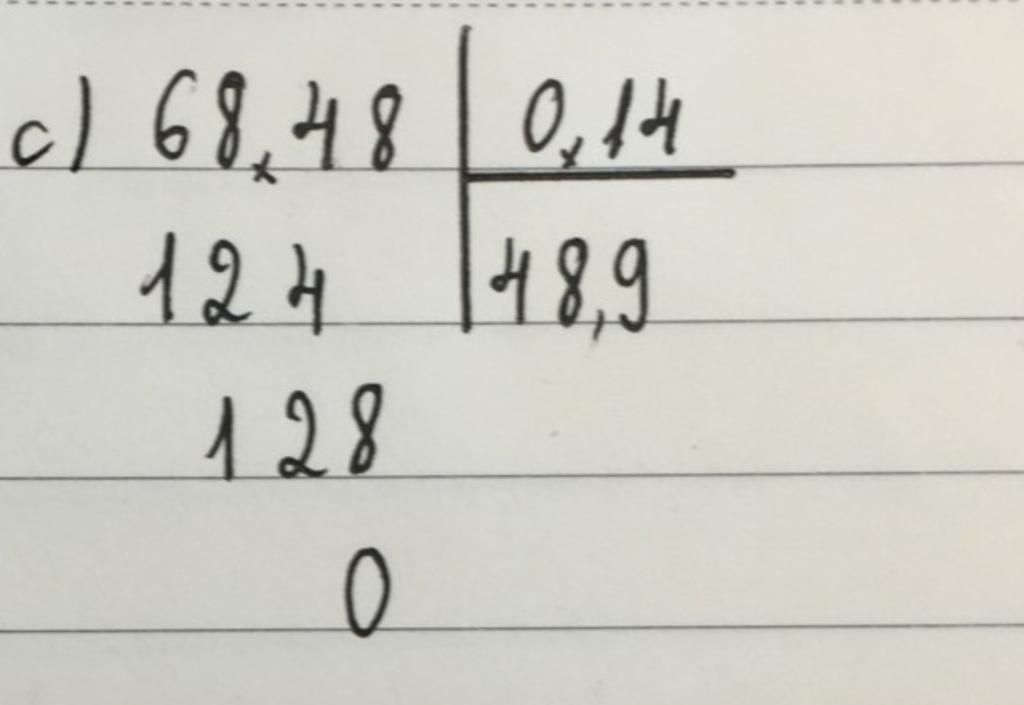 c) 68,48 0,14
124 48,9
128
0